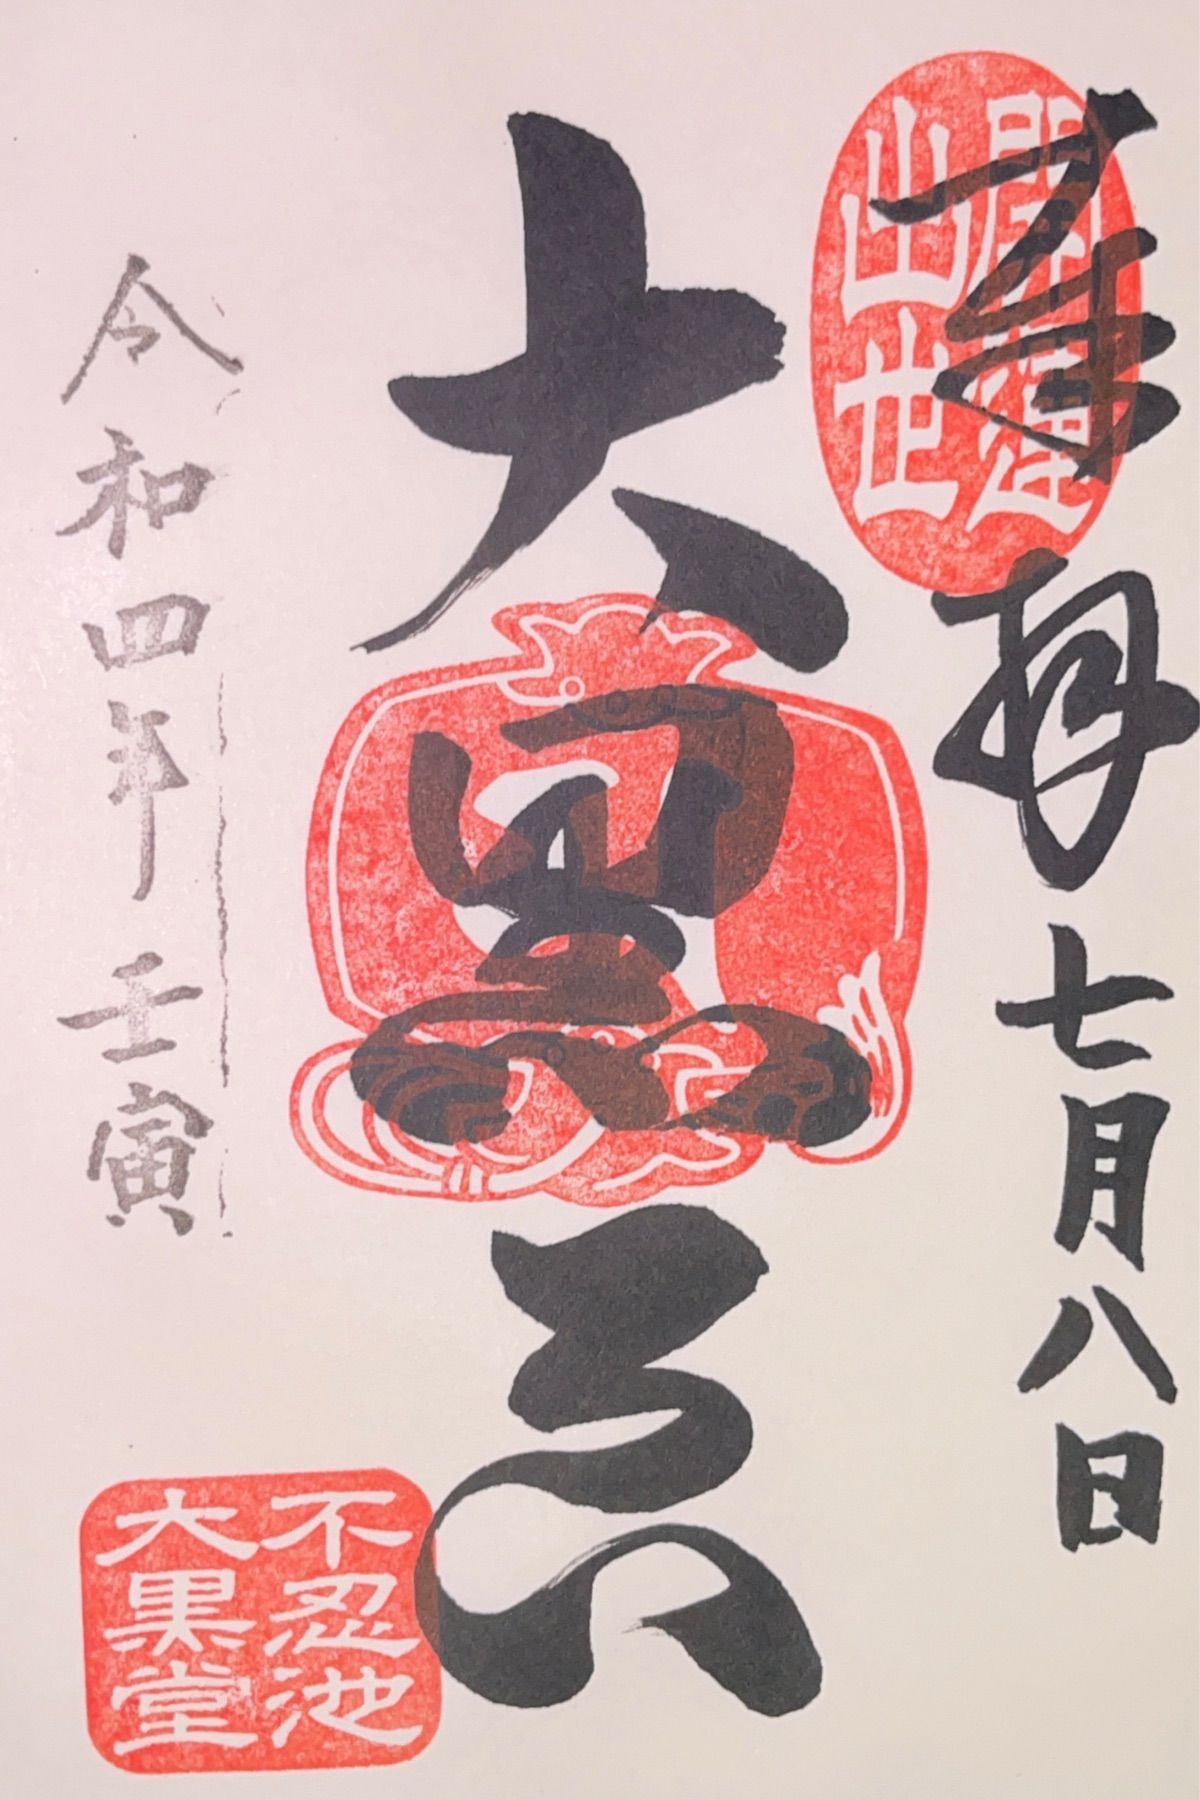 奉拝 七月八日
開運
出世
大黒天
令和四年 壬寅
不忍池
大黒堂